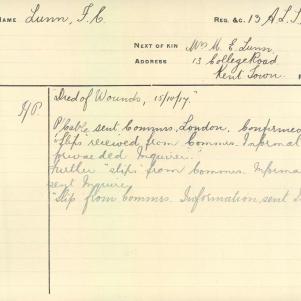 NAME Lunn, F. C. REG. &C. 13 A.L.T.
NEXT OF KIN Mrs M. E. Lunn,
ADDRESS 13 College Road
Kent Town.
"Died of Wounds, 15/10/17."
P/Cable sent Commrs, London. Confirmed
"Slips" received from Commrs. Informat
forwarded Inquirer.
Further "slips" from Commrs. Informa
sent Inquirer
"Slip from Commrs. Information sent I